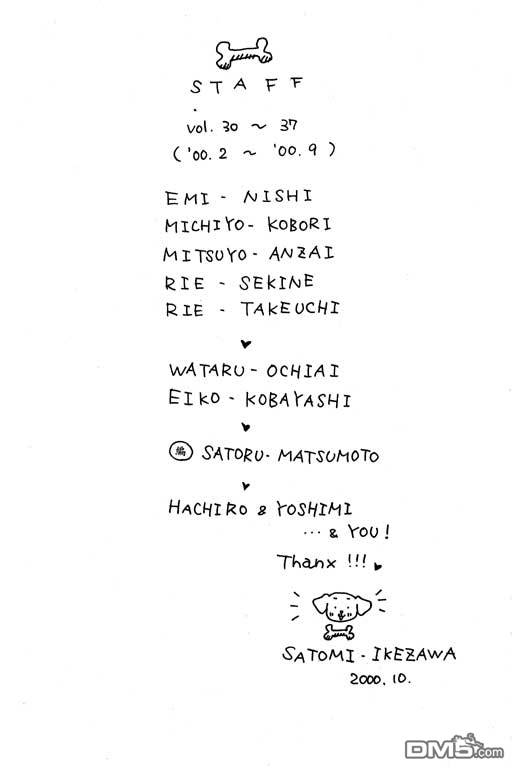 STAFF
vol. 30 ~ 37
('00. 2 ~ '00. 9)
EMI - NISHI
MICHIYO - KOBORI
MITSUYO - ANZAI
RIE - SEKINE
RIE - TAKEUCHI
WATARU - OCHIAI
EIKO - KOBAYASHI
編 SATORU - MATSUMOTO
HACHIRO & YOSHIMI
... & YOU!
Thanx !!!
SATOMI - IKEZAWA
2000. 10.
DM5.com